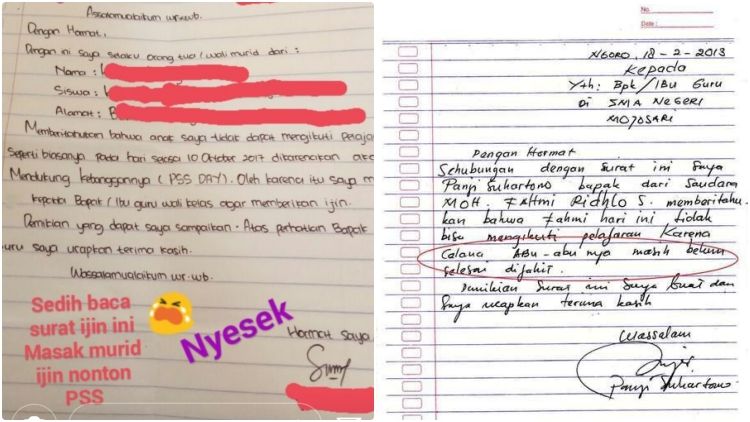 Assalamualaikum wr.wb.
Dengan Hormat,
Dengan ini saya selaku orang tua / wali murid dari :
Nama :
Siswa :
Alamat : B
Memberitahukan bahwa anak saya tidak dapat mengikuti Pelaja
Seperti biasanya Pada hari selasa 10 Oktober 2017 dikarenakan aka
Mendukung Ketanggannya (PSS DAY). Oleh karena itu saya m
kepada Bapak / Ibu guru wali kelas agar memberikan ijin.
Demikian yang dapat saya sampaikan. Atas perhatian Bapak
uru saya ucapkan terima kasih.
Wassalamualaikum wr.wb.
Sedih baca
surat ijin ini
Masak murid
ijin nonton
PSS
Nyesek
Hormat Saya
No.
Date :
NGORO, 18-2-2013
Kepada
Yth: Bpk/IBu Guru
Di SMA NEGERI
MOJOSARI
Dengan Hormat
Sehubungan dengan surat ini Saya
Panji Suhartono bapak dari Saudara
MOH. FAHMI RIDHLO S. memberitahu
kan bahwa Fahmi hari ini tidak
bisa mengikuti pelajaran Karena
Celana ABU-abu nya masih belum
selesai dijahit.
Demikian Surat ini Saya buat dan
Saya ucapkan terima kasih
Wassalam
Panji Suhartono